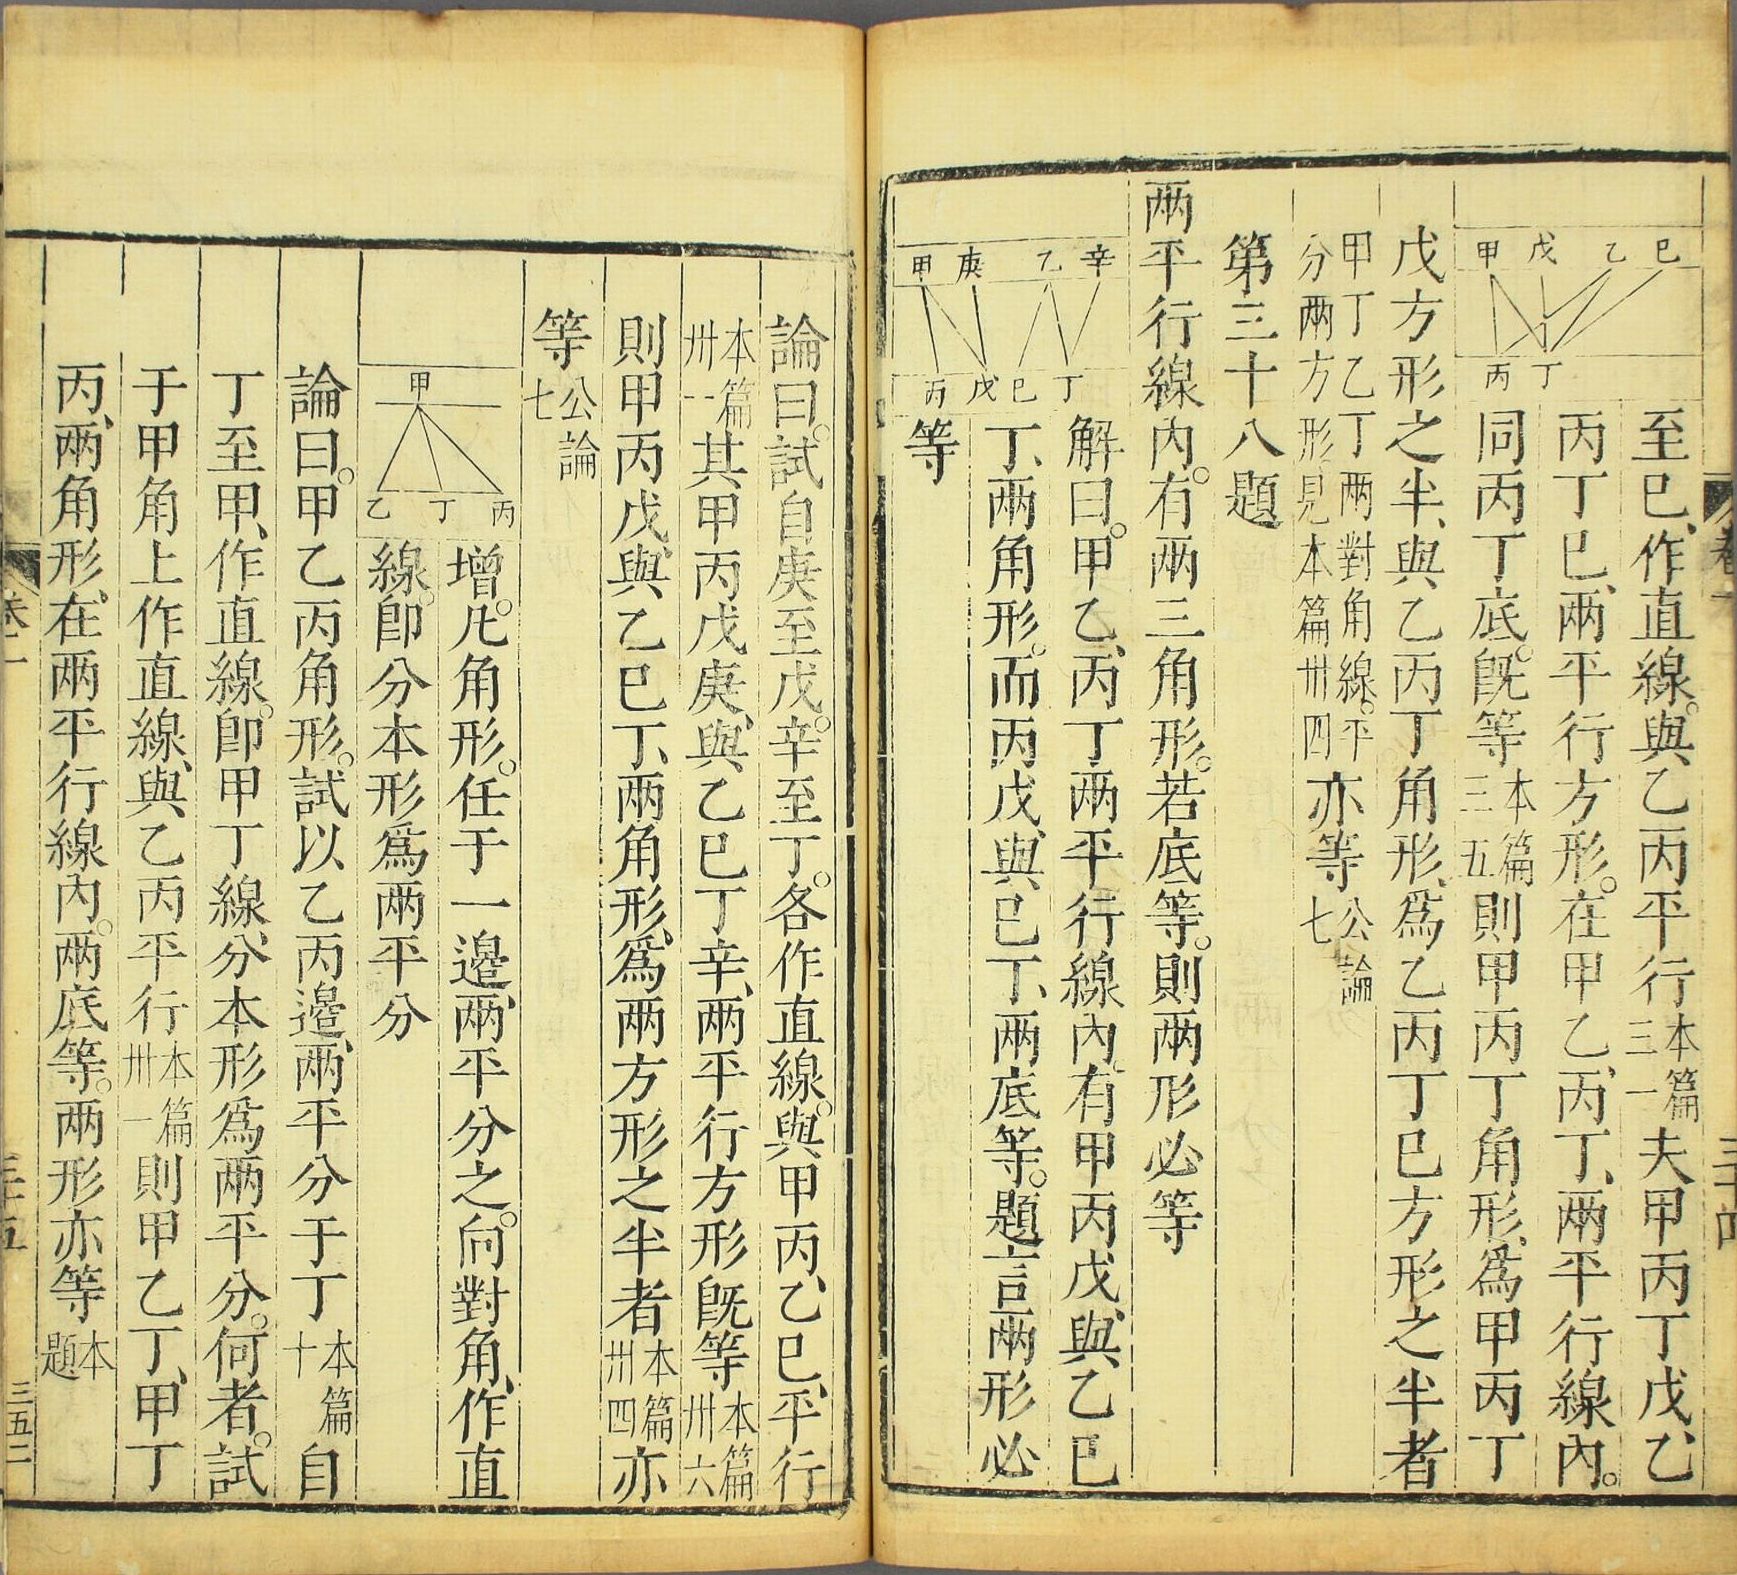 甲 戊 乙 巳
丙 丁
至巳、作直線。與乙丙平行本篇三一夫甲丙丁戊、乙
丙丁巳、兩平行方形。在甲乙、丙丁、兩平行線內。
同丙丁底。旣等本篇三五則甲丙丁角形、爲甲丙丁
戊方形之半、與乙丙丁角形、爲乙丙丁巳方形之半者
甲丁乙丁兩對角線。平分兩方形見本篇卅四亦等公論七
第三十八題
兩平行線內。有兩三角形。若底等。則兩形必等
甲 庚 乙 辛
丙 戊 巳 丁
解曰。甲乙、丙丁兩平行線內、有甲丙戊、與乙巳
丁、兩角形。而丙戊、與巳丁、兩底等。題言兩形必
等
論曰。試自庚至戊。辛至丁。各作直線。與甲丙、乙巳、平行
本篇卅一其甲丙戊庚、與乙巳丁辛、兩平行方形旣等本篇卅六
則甲丙戊、與乙巳丁、兩角形、爲兩方形之半者本篇卅四亦
等公論七
甲
乙 丁 丙
增。凡角形。任于一邊、兩平分之。向對角、作直
線。卽分本形爲兩平分
論曰。甲乙丙角形。試以乙丙邊、兩平分于丁本篇十自
丁至甲、作直線。卽甲丁線、分本形爲兩平分。何者。試
于甲角上作直線、與乙丙平行本篇卅一則甲乙丁、甲丁
丙、兩角形、在兩平行線內。兩底等。兩形亦等本題
三十五
三五二